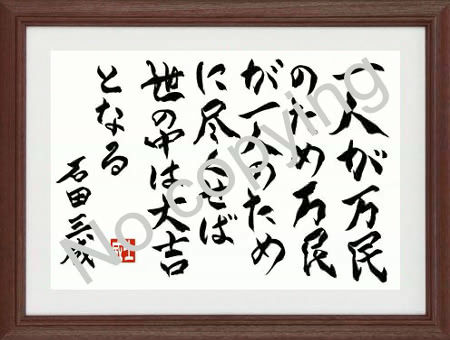 一人が万民
のため万民
が一人のため
に尽くせば
世の中は大吉
となる
石田三成
No copying